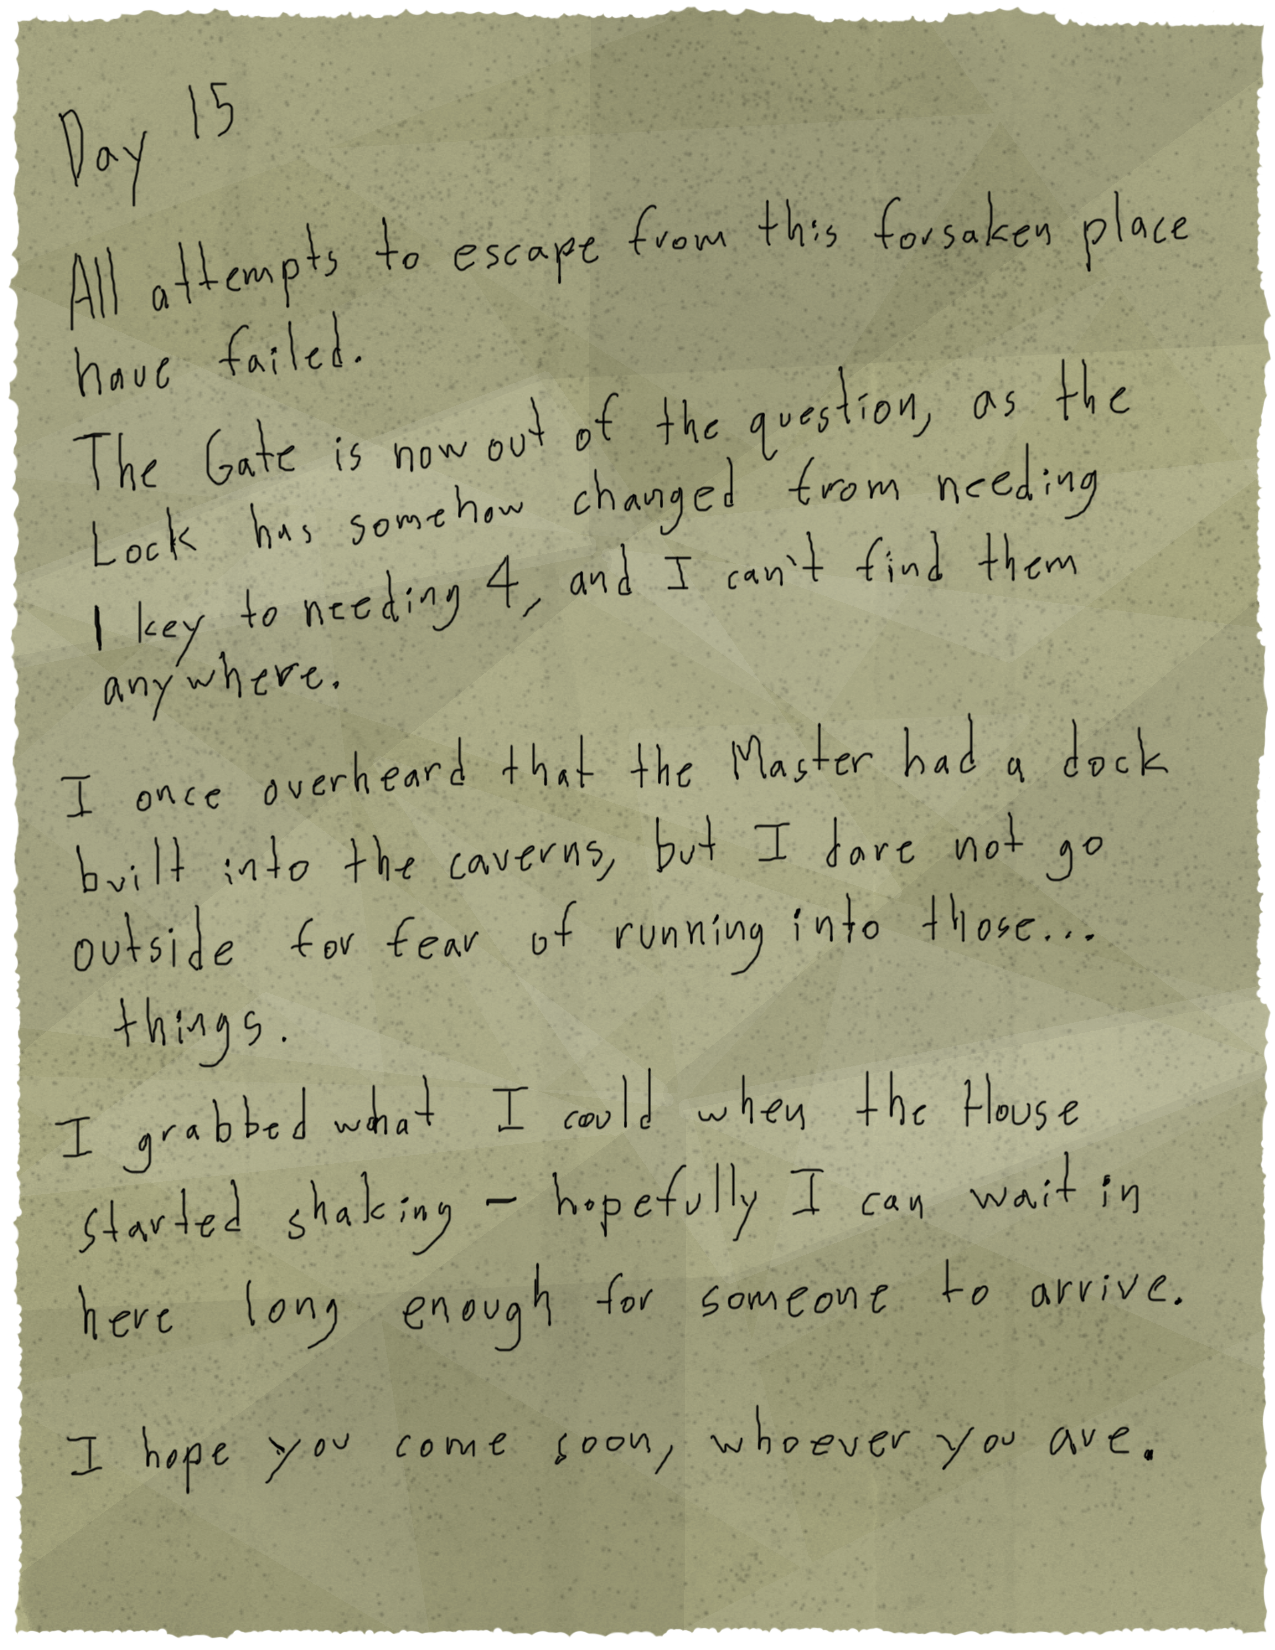 Day 15
All attempts to escape from this forsaken place
have failed.
The Gate is now out of the question, as the
Lock has somehow changed from needing
1 key to needing 4, and I can't find them
anywhere.
I once overheard that the Master had a dock
built into the caverns, but I dare not go
outside for fear of running into those...
things.
I grabbed what I could when the House
started shaking - hopefully I can wait in
here long enough for someone to arrive.
I hope you come soon, whoever you are.